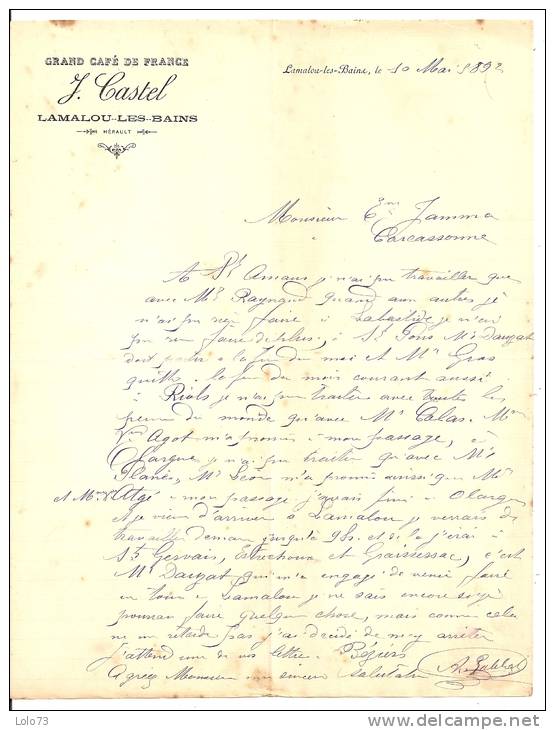 GRAND CAFÉ DE FRANCE
J. Castel
LAMALOU-LES-BAINS
HÉRAULT
Lamalou-les-Bains, le 10 Mai 1892
Monsieur Em Jamma
à
Carcassonne
A St Amans je n'ai pu travailler que
avec Mr Raynaud quand aux autres je
n'ai pu rien faire à Labastide je n'ai
pu rien faire de plus, à St Pons Mr Dauzat
doit partir à la fin du mois et Mr Gros
quitte la fin du mois courant aussi
à Riols je n'ai pu traiter avec toutes les
peines du monde qu'avec Mr Calas. Mme
Vve Agot m'a promis à mon passage, à
Olargues je n'ai pu traiter qu'avec Mr
Planès, Mr Léon m'a promis aussi que Mr
A Mme Vve Algé à mon passage j'avais fini à Olargues
et je viens d'arriver à Lamalou je verrais de
travailler demain jusqu'à 9h. et de là j'irai à
St Gervais, Estrechoux et Graissessac, c'est
Mr Dauzat qui m'a engagé de venir faire
un tour à Lamalou je ne sais encore si je
pourrai faire quelque chose, mais comme cela
ne me retarde pas j'ai décidé de m'y arrêter
j'attend une de vos lettres Béziers
Agréez Monsieur mes sincères salutations
Lolo73
www.delcampe.net